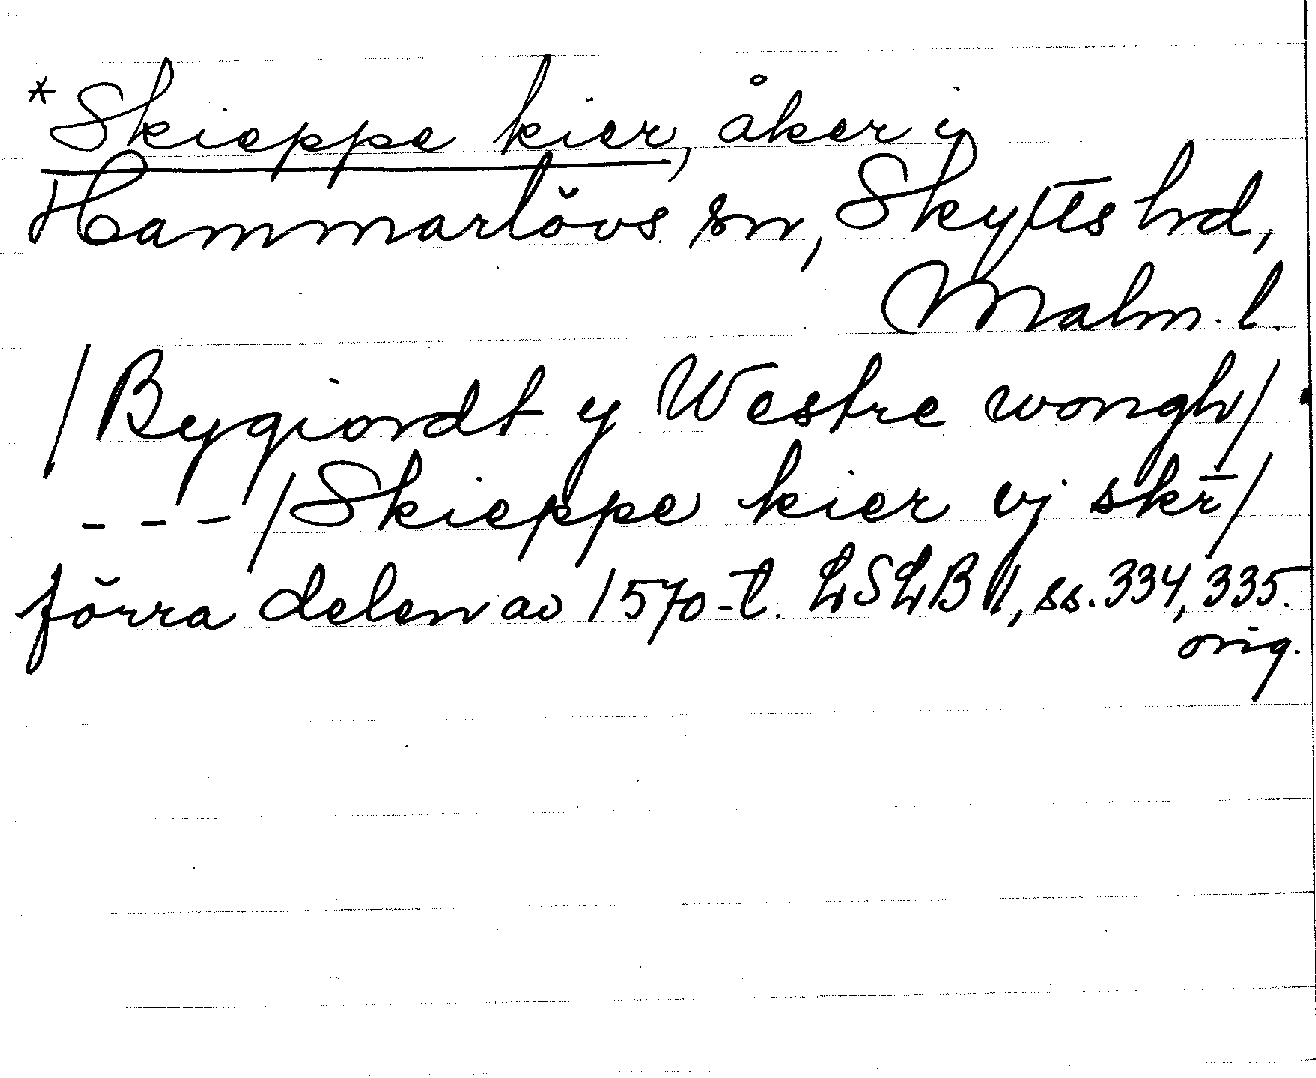 *Skieppe kier, åker i
Hammarlövs sn, Skytts hd,
Malm. l.
/Bygiordt y Westre wongh/
- - - /Skieppe kier vj skr̄/
förra delen av 1570-t. LSLB II, ss. 334, 335.
orig.